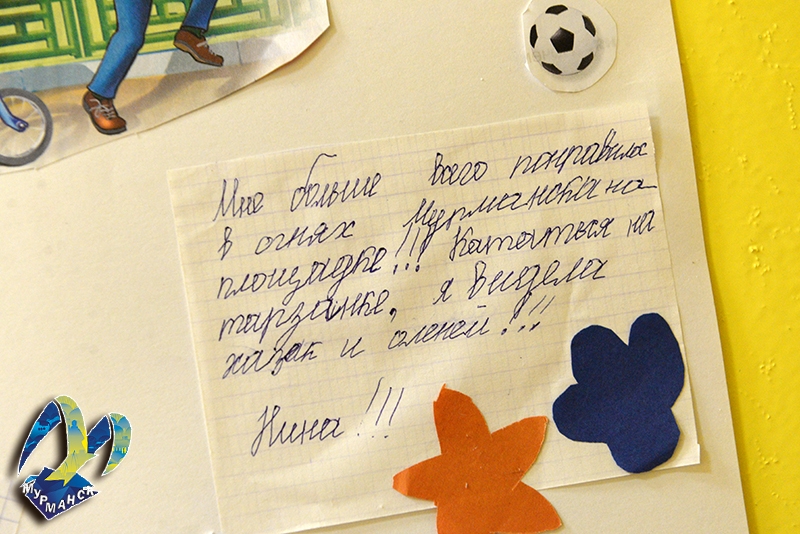 Мне больше всего понравилос
в огнях Мурманска на
площадке!!! Кататься на
тарзанке, я видела
хазак и оленей!!!
Нина!!!
МУРМАНСК